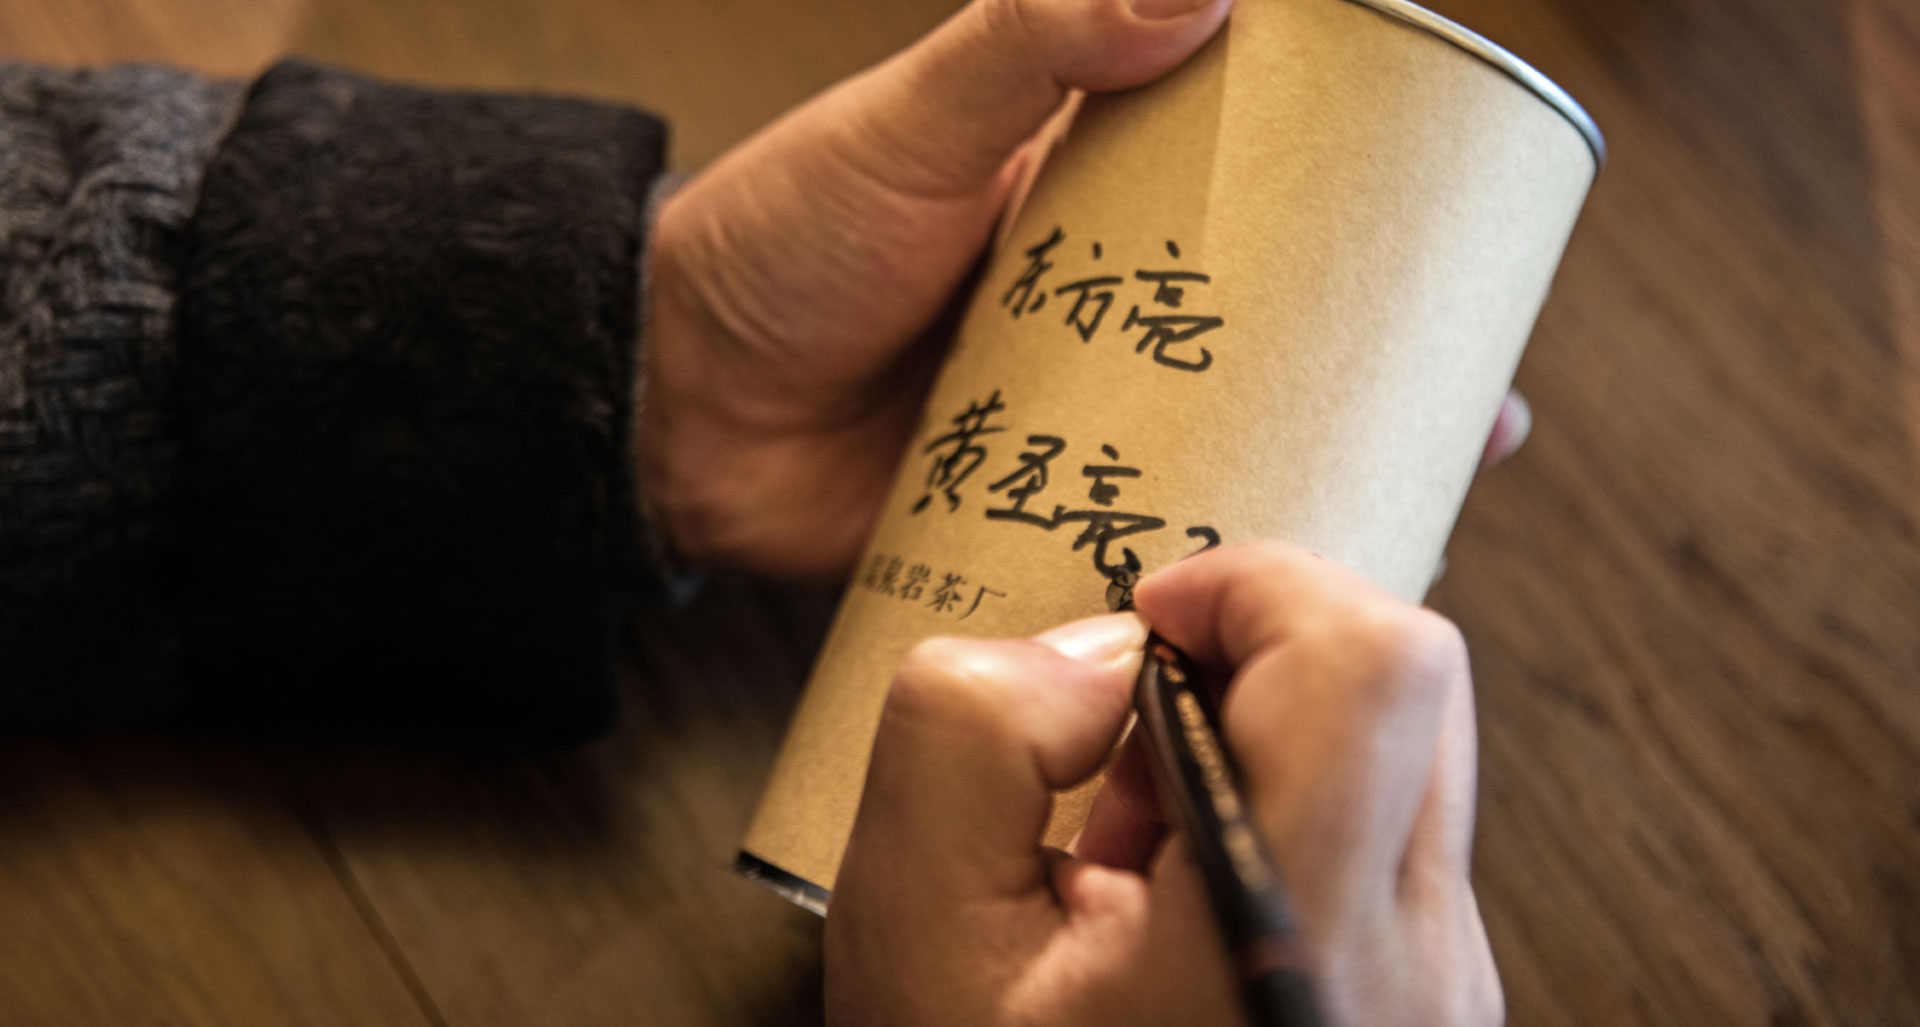 东方亮
黄圣亮
泉岩茶厂